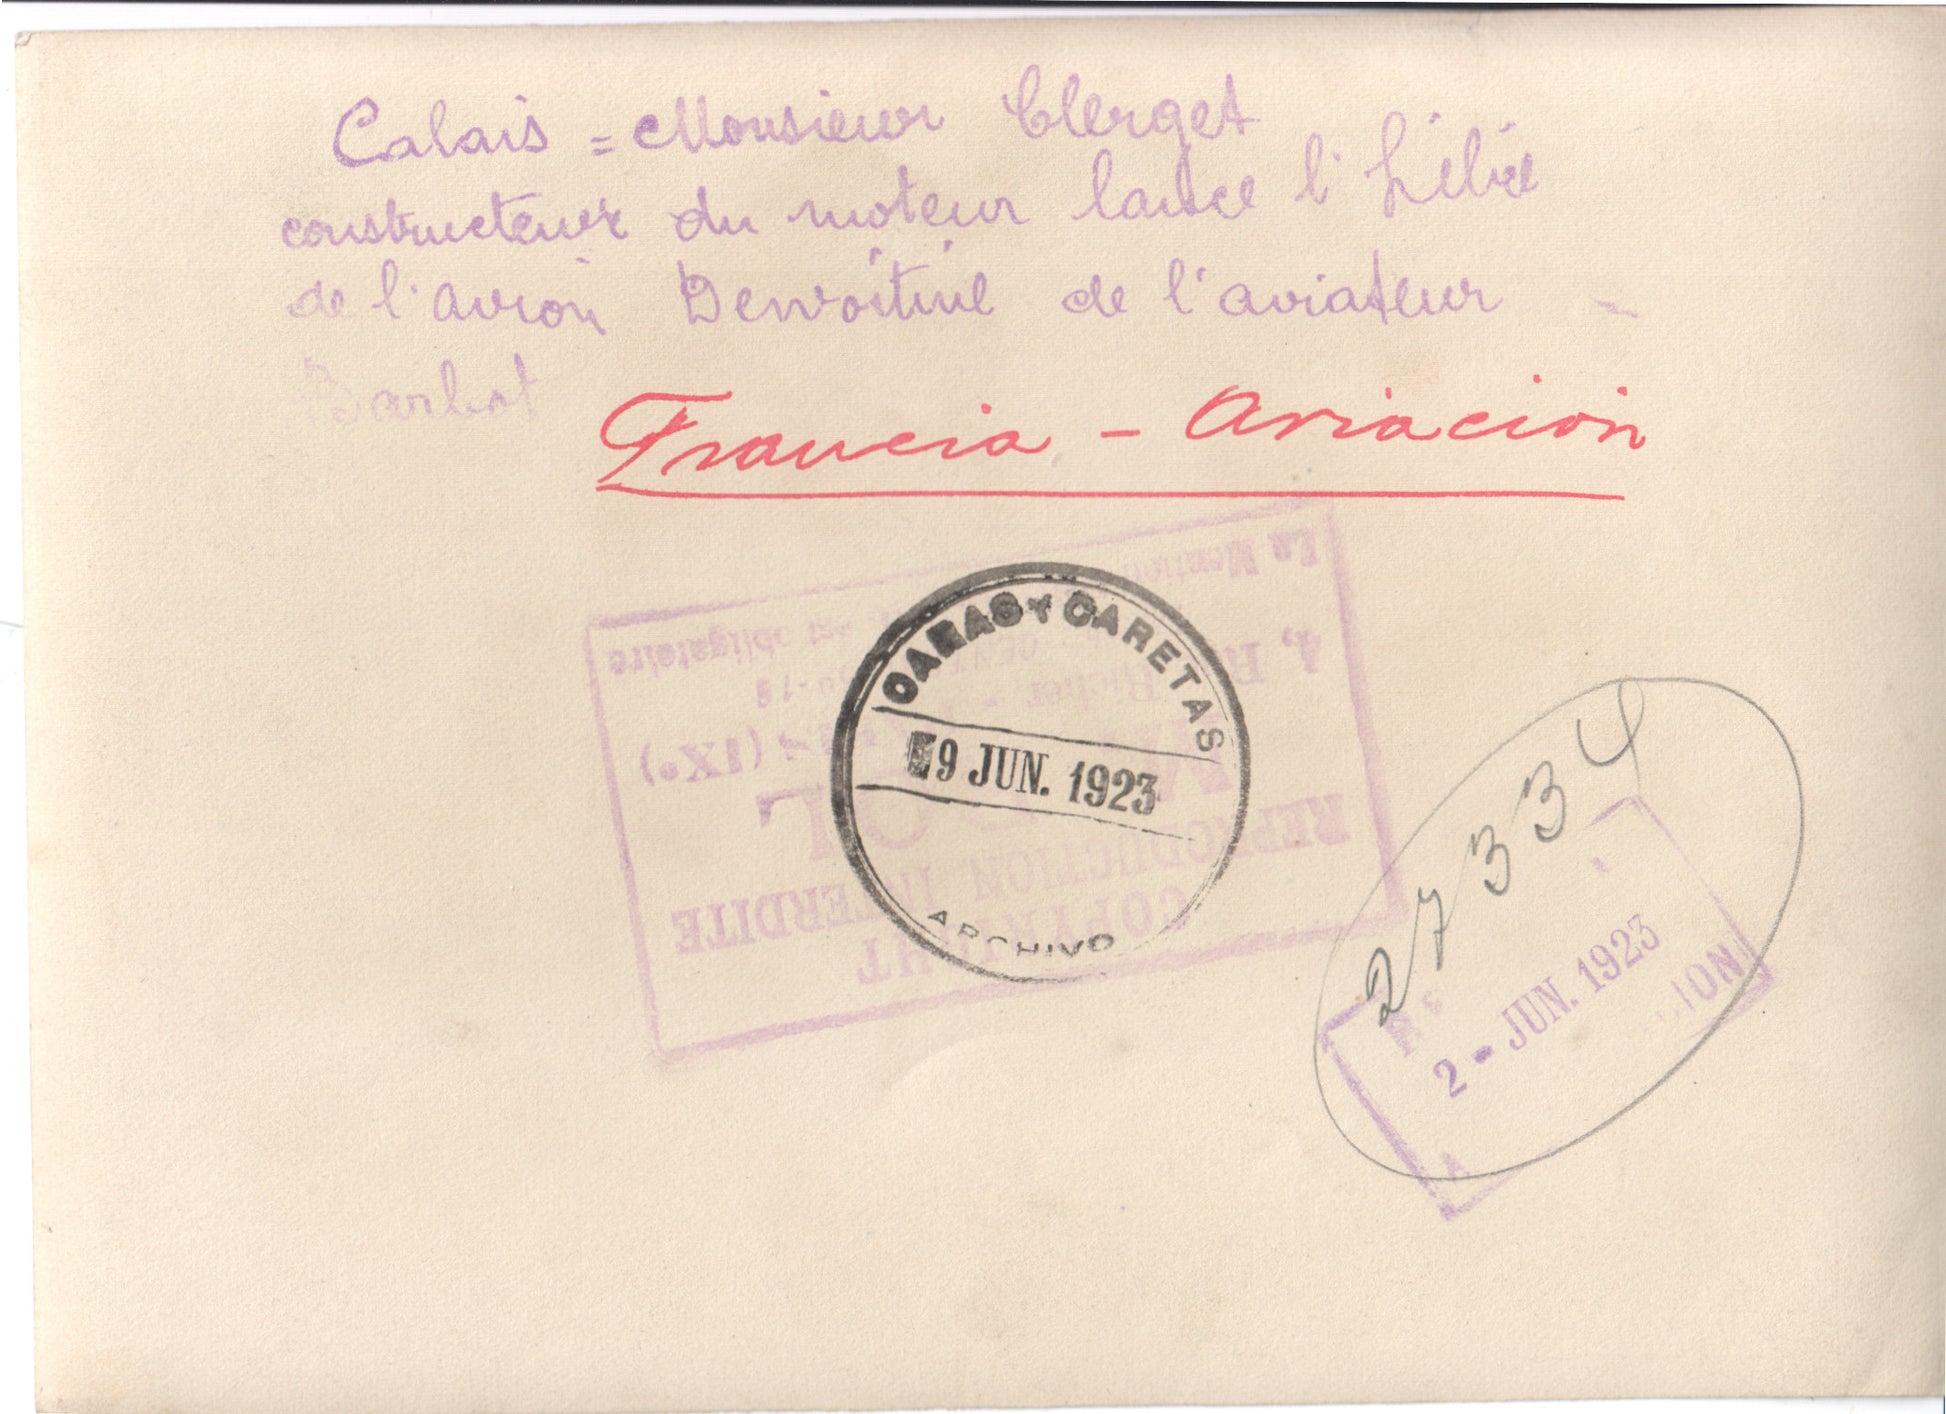 Calais = Monsieur Clerget
constructeur du moteur lance l'hélice
de l'avion Dewoitine de l'aviateur -
Barbot
Francia - Aviación
La Mention
est obligatoire
4, R
Richer
(IXe)
REPRODUCTION INTERDITE
COPYRIGHT
CARAS Y CARETAS
9 JUN. 1923
ARCHIVO
27334
2 - JUN. 1923